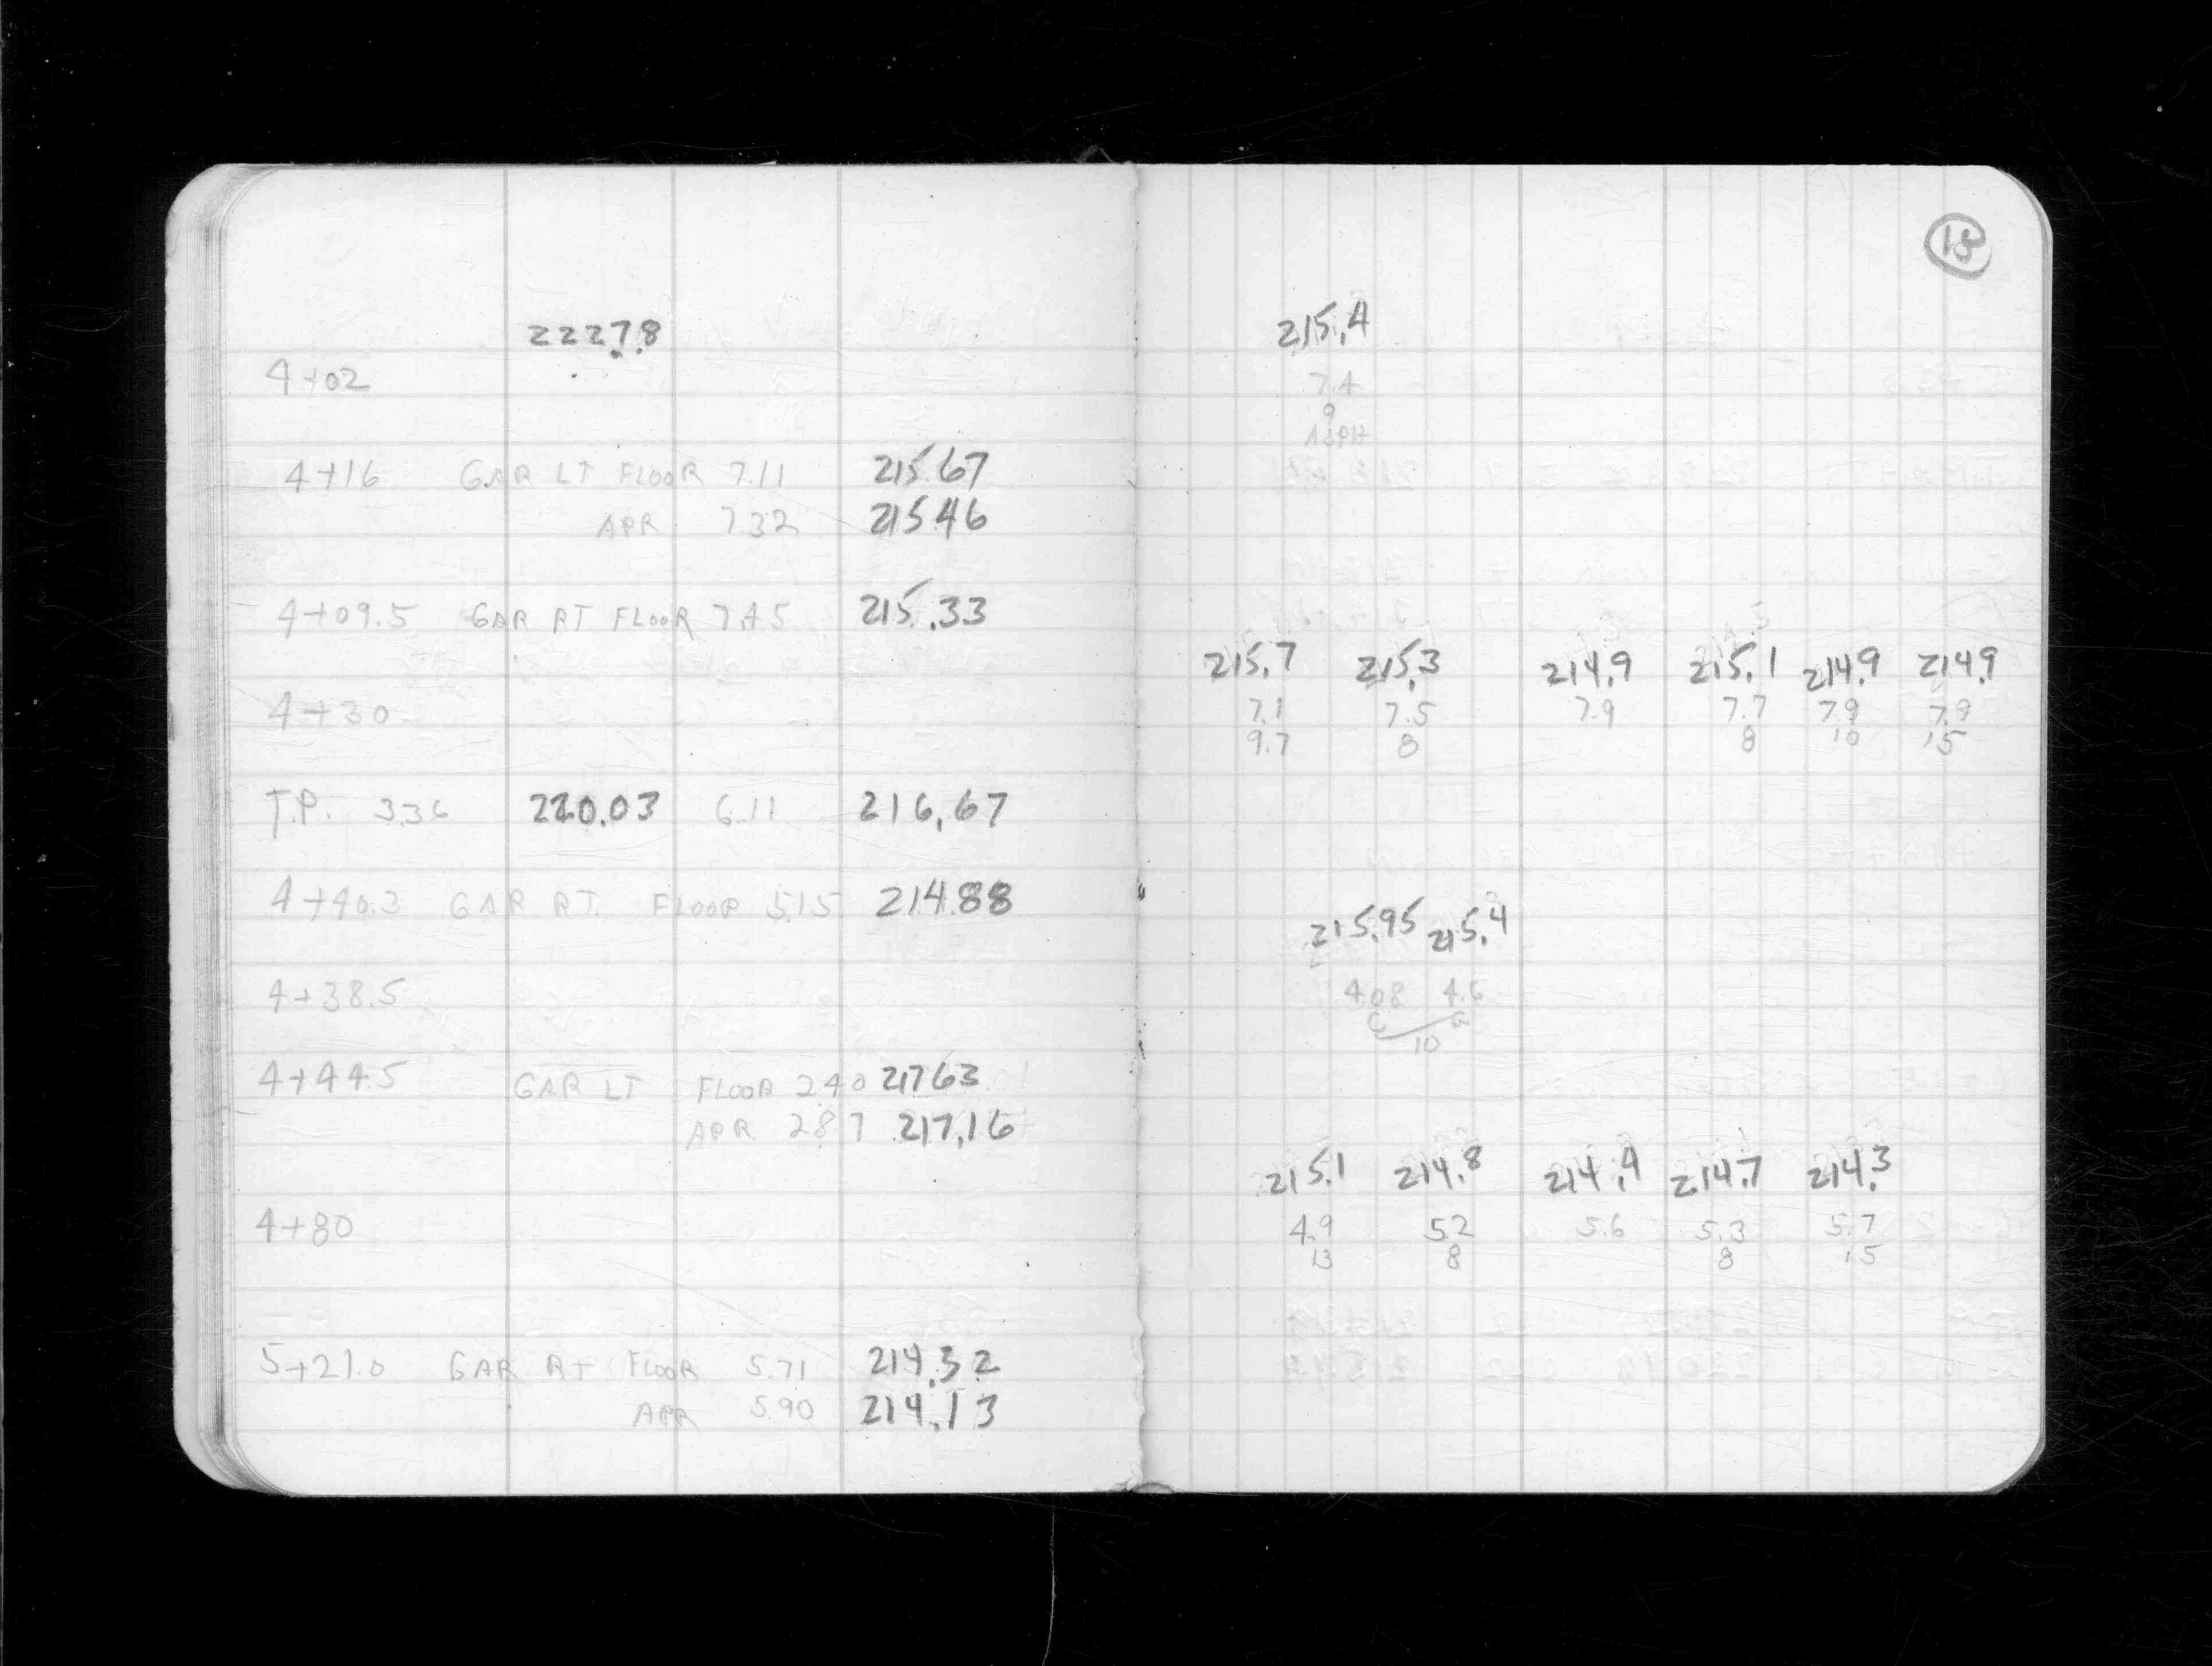 222.78
4+02
4+16 GAR LT FLOOR 7.11 215.67
APR 7.32 215.46
4+09.5 GAR RT FLOOR 7.45 215.33
4+30
T.P. 3.36 220.03 6.11 216.67
4+40.3 GAR RT. FLOOR 5.15 214.88
4+38.5
4+44.5 GAR LT FLOOR 2.40 217.63
APR 2.87 217.16
4+80
5+21.0 GAR RT FLOOR 5.71 214.32
APR 5.90 214.13
15
215.4
7.4
9
ASPH
215.7 215.3 214.9 215.1 214.9 214.9
7.1 7.5 7.9 7.7 7.9 7.9
9.7 8 8 10 15
215.95 215.4
4.08 4.6
C G
10
215.1 214.8 214.4 214.7 214.3
4.9 5.2 5.6 5.3 5.7
13 8 8 15